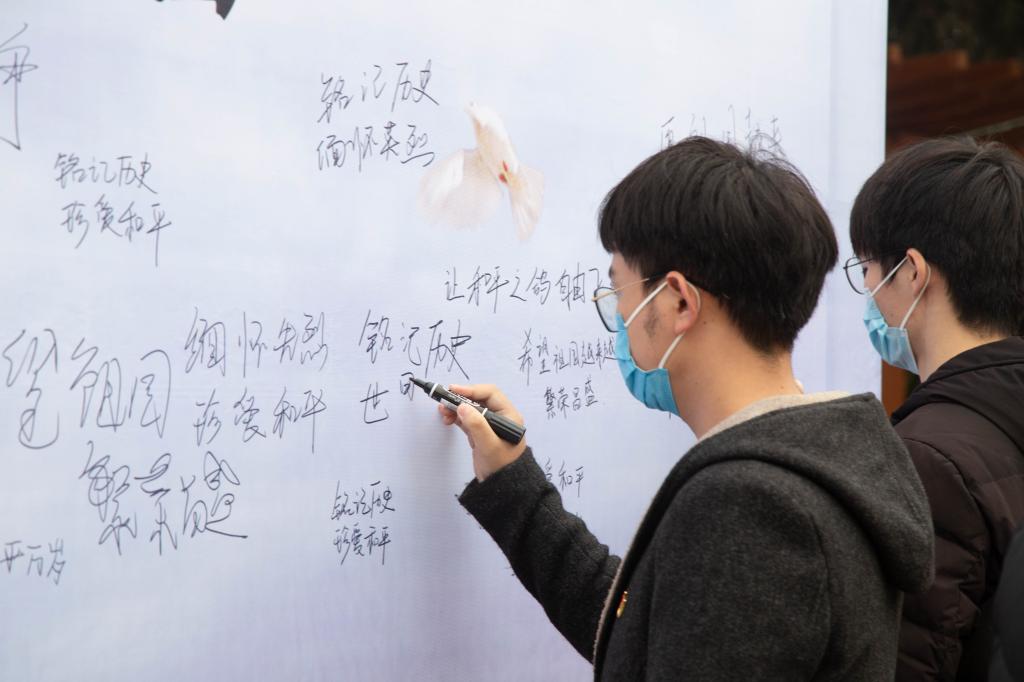 铭记历史
缅怀英烈
铭记历史
珍爱和平
让和平之鸽翱
缅怀先烈
珍爱和平
铭记历史
世
希望祖国越来越
繁荣昌盛
祖国
繁荣昌盛
铭记历史
珍爱和平
和平
万岁